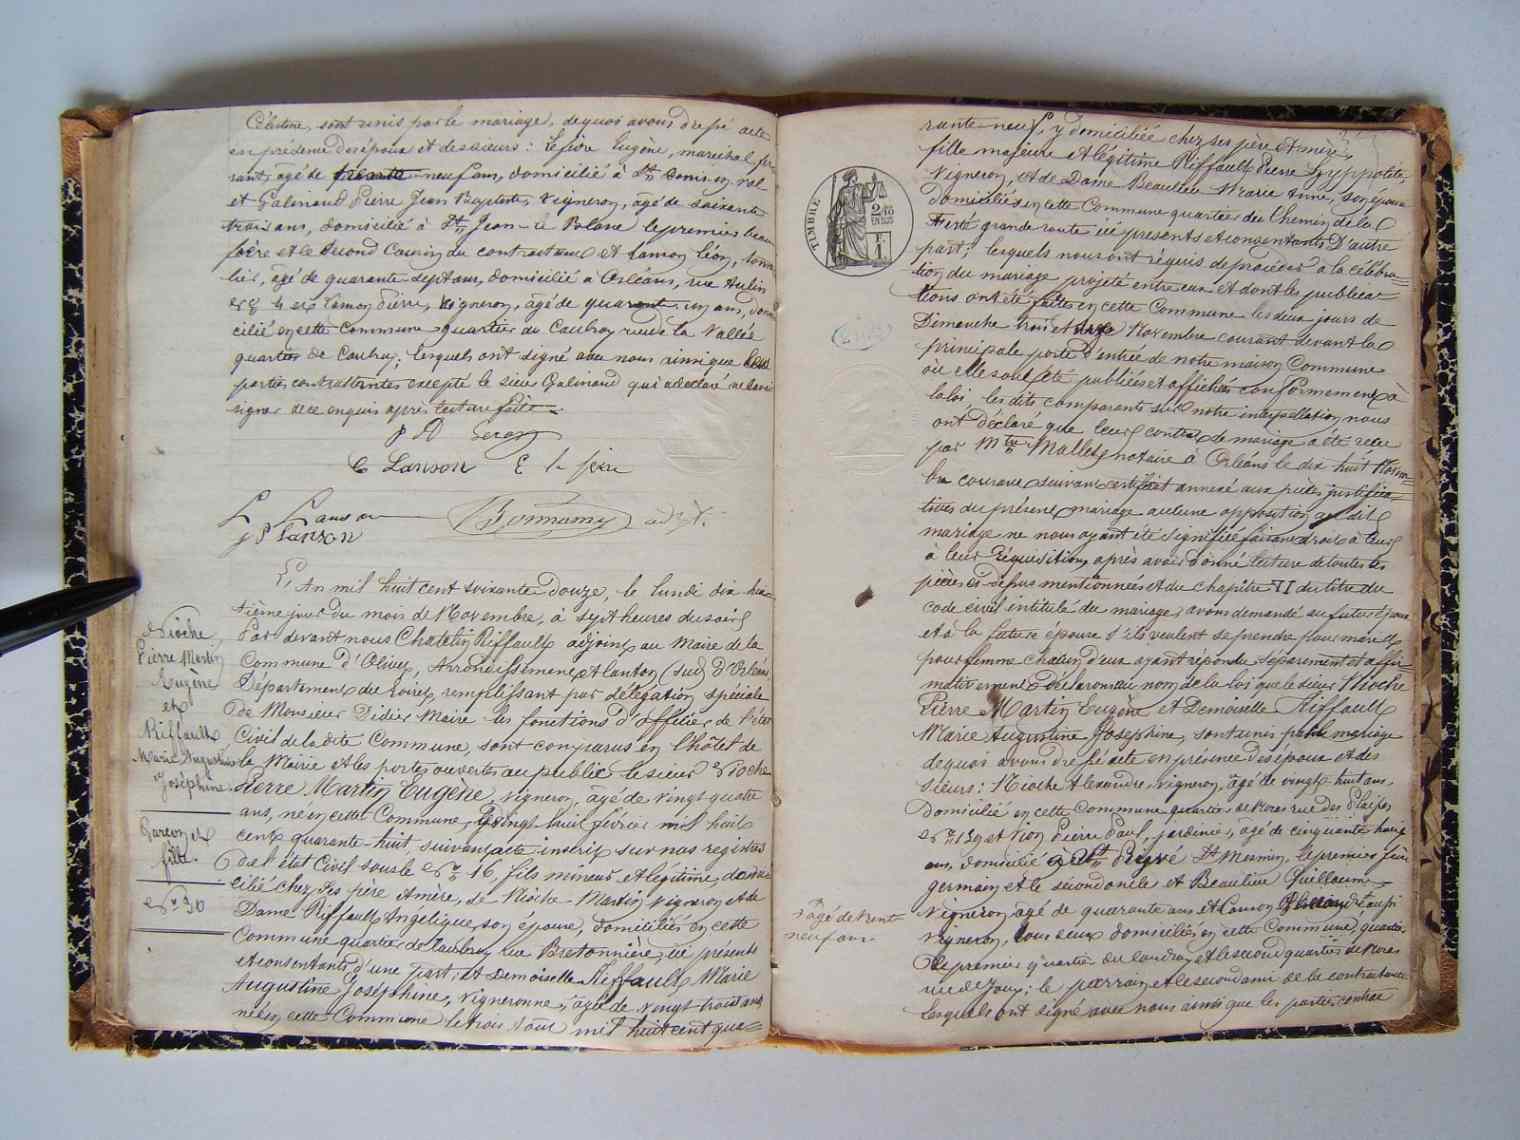 Célestine, sont unis par le mariage, de quoi avons dressé acte
en présence des époux et des sieurs : Lejeire Eugène, maréchal fer
rant, âgé de trente neuf ans, domicilié à St Denis en val
et Galinand Pierre Jean Baptiste, vigneron, âgé de soixante
trois ans, domicilié à St Jean-le Blanc le premier beau
frère et le second Cousin du contractant et Lanson Léon, tonne
lier, âgé de quarante sept ans, domicilié à Orléans, rue
et Lanson Pierre, vigneron, âgé de quarante un ans, domi
cilié en cette Commune quartier du Caubray rue de la Vallée
quartier de Caubray; lesquels ont signé avec nous ainsi que les
parties contractantes excepté le sieur Galinand qui a déclaré ne savoir
signer de ce enquis après lecture faite.
C Lanson E le jeire
L Lanson Bonnamy adjt.
P Lanson
L'An mil huit cent soixante douze, le lundi dix hui
tième jour du mois de Novembre, à sept heures du soir
Par devant nous Chatelin Riffault adjoint au Maire de la
Commune d'Olivet, Arrondissement et canton (sud) d'Orléans
Département du Loiret, remplissant par délégation spéciale
de Monsieur Didier Maire les fonctions d'officier de l'état
Civil de la dite Commune, sont comparus en l'hôtel de
la Mairie et les portes ouvertes au public le sieur Nioche
Pierre Martin Eugène, vigneron, âgé de vingt quatre
ans, né en cette Commune, le vingt huit février mil huit
cent quarante-huit suivant acte inscrit sur nos registres
de l'état Civil sous le No 16, fils mineur et légitime, domi
cilié chez ses père et mère, de Nioche Martin vigneron et de
Dame Riffault Angélique, son épouse, domiciliés en cette
Commune quartier de Caubray rue Bretonnière, ici présents
et consentants d'une part, et Demoiselle Riffault Marie
Augustine Joséphine, vigneronne, âgée de vingt trois ans
née en cette Commune le trois Août mil huit cent qua=
Nioche
Pierre Martin
Eugène
et
Riffault
Marie Augustine
Joséphine
Garçon et
fille.
No 30
TIMBRE
rante-neuf, y domiciliée chez ses père et mère,
fille majeure et légitime Riffault Pierre Hyppolite,
Vigneron, et de Dame Beaulieu Marie Anne, son épouse
domiciliés en cette Commune quartier du Chemin de la
Ferté grande route ici présents et consentants d'autre
part; lesquels nous ont requis de procéder à la célébra-
tion du mariage projeté entre eux et dont les publica-
tions ont été faites en cette Commune les deux jours de
Dimanche trois et Novembre courant devant la
principale porte d'entrée de notre maison Commune
où elle sont été publiées et affichées conformément à
la loi, les dits comparants sur notre interpellation nous
ont déclaré que leur contrat de mariage a été reçu
par Mtre Mallet notaire à Orléans le dix huit Novem-
bre courant suivant certificat annexé aux pièces justifica-
tives du présent mariage aucune opposition au dit
mariage ne nous ayant été signifiée faisant droit à leur
à leur réquisition, après avoir donné lecture de toutes les
pièces ci dessus mentionnées et du chapitre VI du titre du
code civil intitulé du mariage, avons demandé au futur époux
et à la future épouse s'ils veulent se prendre pour mari et
pour femme chacun d'eux ayant répondu séparément et affir-
mativement déclarons au nom de la loi que le sieur Nioche
Pierre Martin Eugène et Demoiselle Riffault
Marie Augustine Joséphine, sont unis par le mariage
de quoi avons dressé acte en présence des époux et des
sieurs : Nioche Alexandre, vigneron, âgé de vingt huit ans,
Domicilié en cette Commune quartier de Nores rue des Plaises
No 139 et Vion Pierre Paul, jardinier, âgé de cinquante huit
ans, domicilié à St Privé St Mesmin, le premier frère
germain et le second oncle et Beaulieu Guillaume
Vigneron âgé de quarante ans et Lanson
Vigneron, tous deux domiciliés en cette Commune, quartier
le premier quartier du et le second quartier de Nores
rue de Jouy; le parrain et le second ami de la contractante
lesquels ont signé avec nous ainsi que les parties contrac
âgé de trente
neuf ans